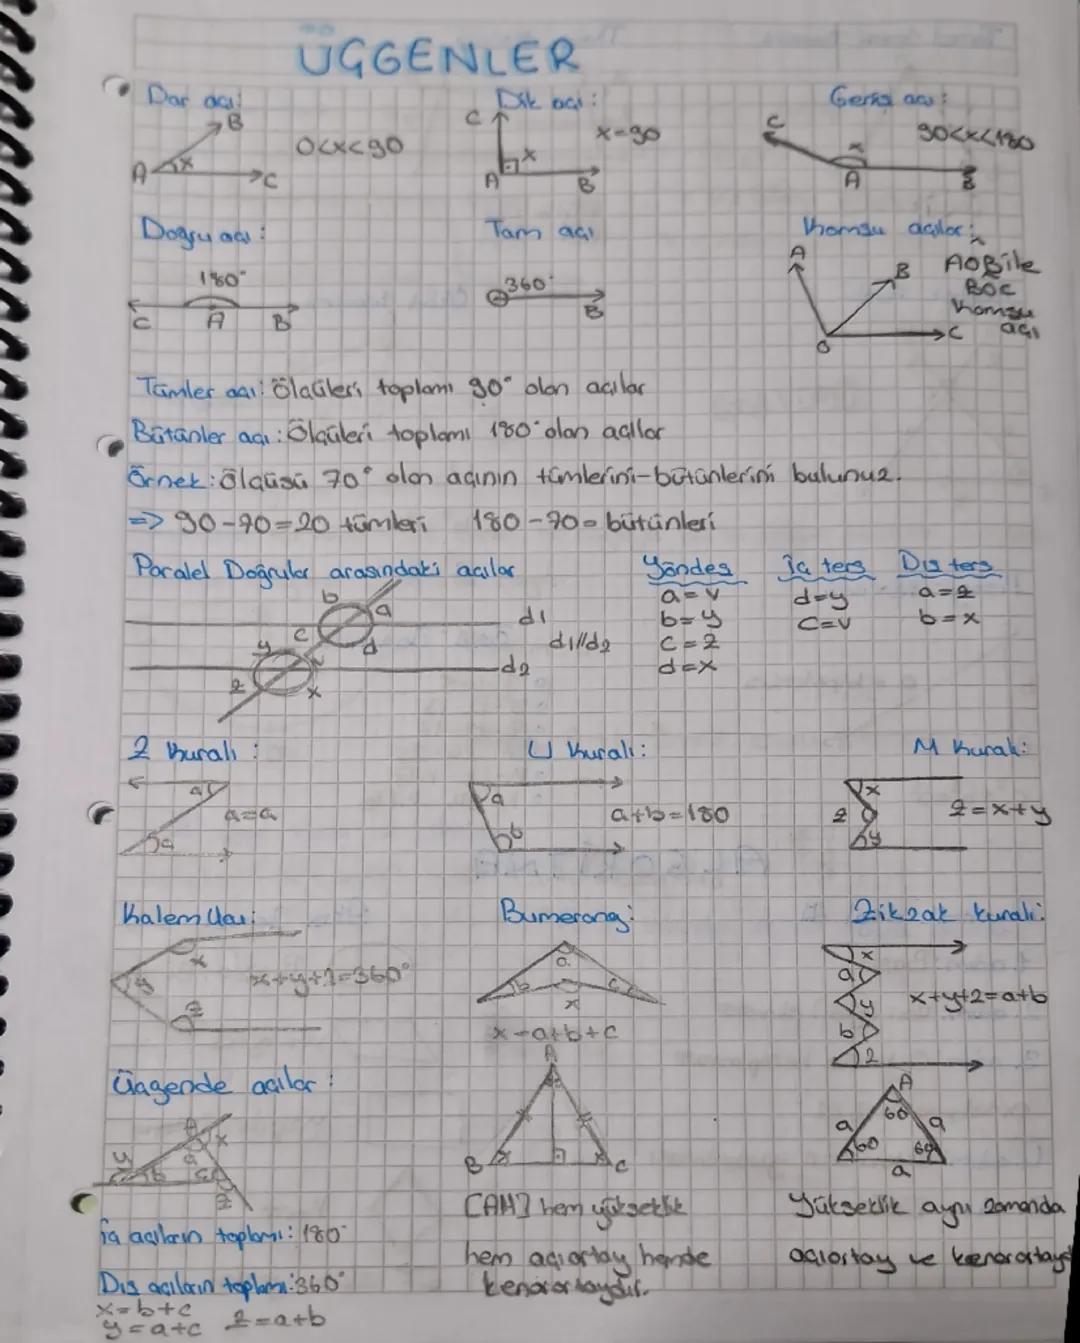 ÜÇGENLER
Dar açı:
B
A
x
C
0<x<90
Dik açı:
C
A
x
B
x=90
Geniş açı:
C
x
A
B
90<x<180
Doğru açı:
180°
C
A
B
Tam açı
360°
B
Komşu açılar:
A
B
O
C
AOB ile
BOC
komşu
açı
Tümler açı: Ölçüleri toplamı 90° olan açılar
Bütünler açı: Ölçüleri toplamı 180° olan açılar
Örnek: Ölçüsü 70° olan açının tümlerini-bütünlerini bulunuz.
=> 90-70=20 tümleri 180-70= bütünleri
Paralel Doğrular arasındaki açılar
b
a
c
d
d1
y
v
z
x
d2
d1//d2
Yöndeş
a=v
b=y
c=z
d=x
İç ters
d=y
c=v
Dış ters
a=z
b=x
Z kuralı:
a
a
a=a
U kuralı:
a
b
a+b=180
M kuralı:
x
z
y
z=x+y
Kalem Ucu:
x
y
z
x+y+z=360°
Bumerang:
a
b
c
x
x=a+b+c
Zikzak kuralı:
x
a
y
b
z
x+y+z=a+b
Üçgende açılar:
A
x
y
a
b
c
z
İç açıların toplamı: 180°
Dış açıların toplamı: 360°
x=b+c
y=a+c z=a+b
A
B
C
[AH] hem yükseklik
hem açıortay hemde
kenarortaydır.
A
60
a
a
60
60
a
Yükseklik aynı zamanda
açıortay ve kenarortaydır